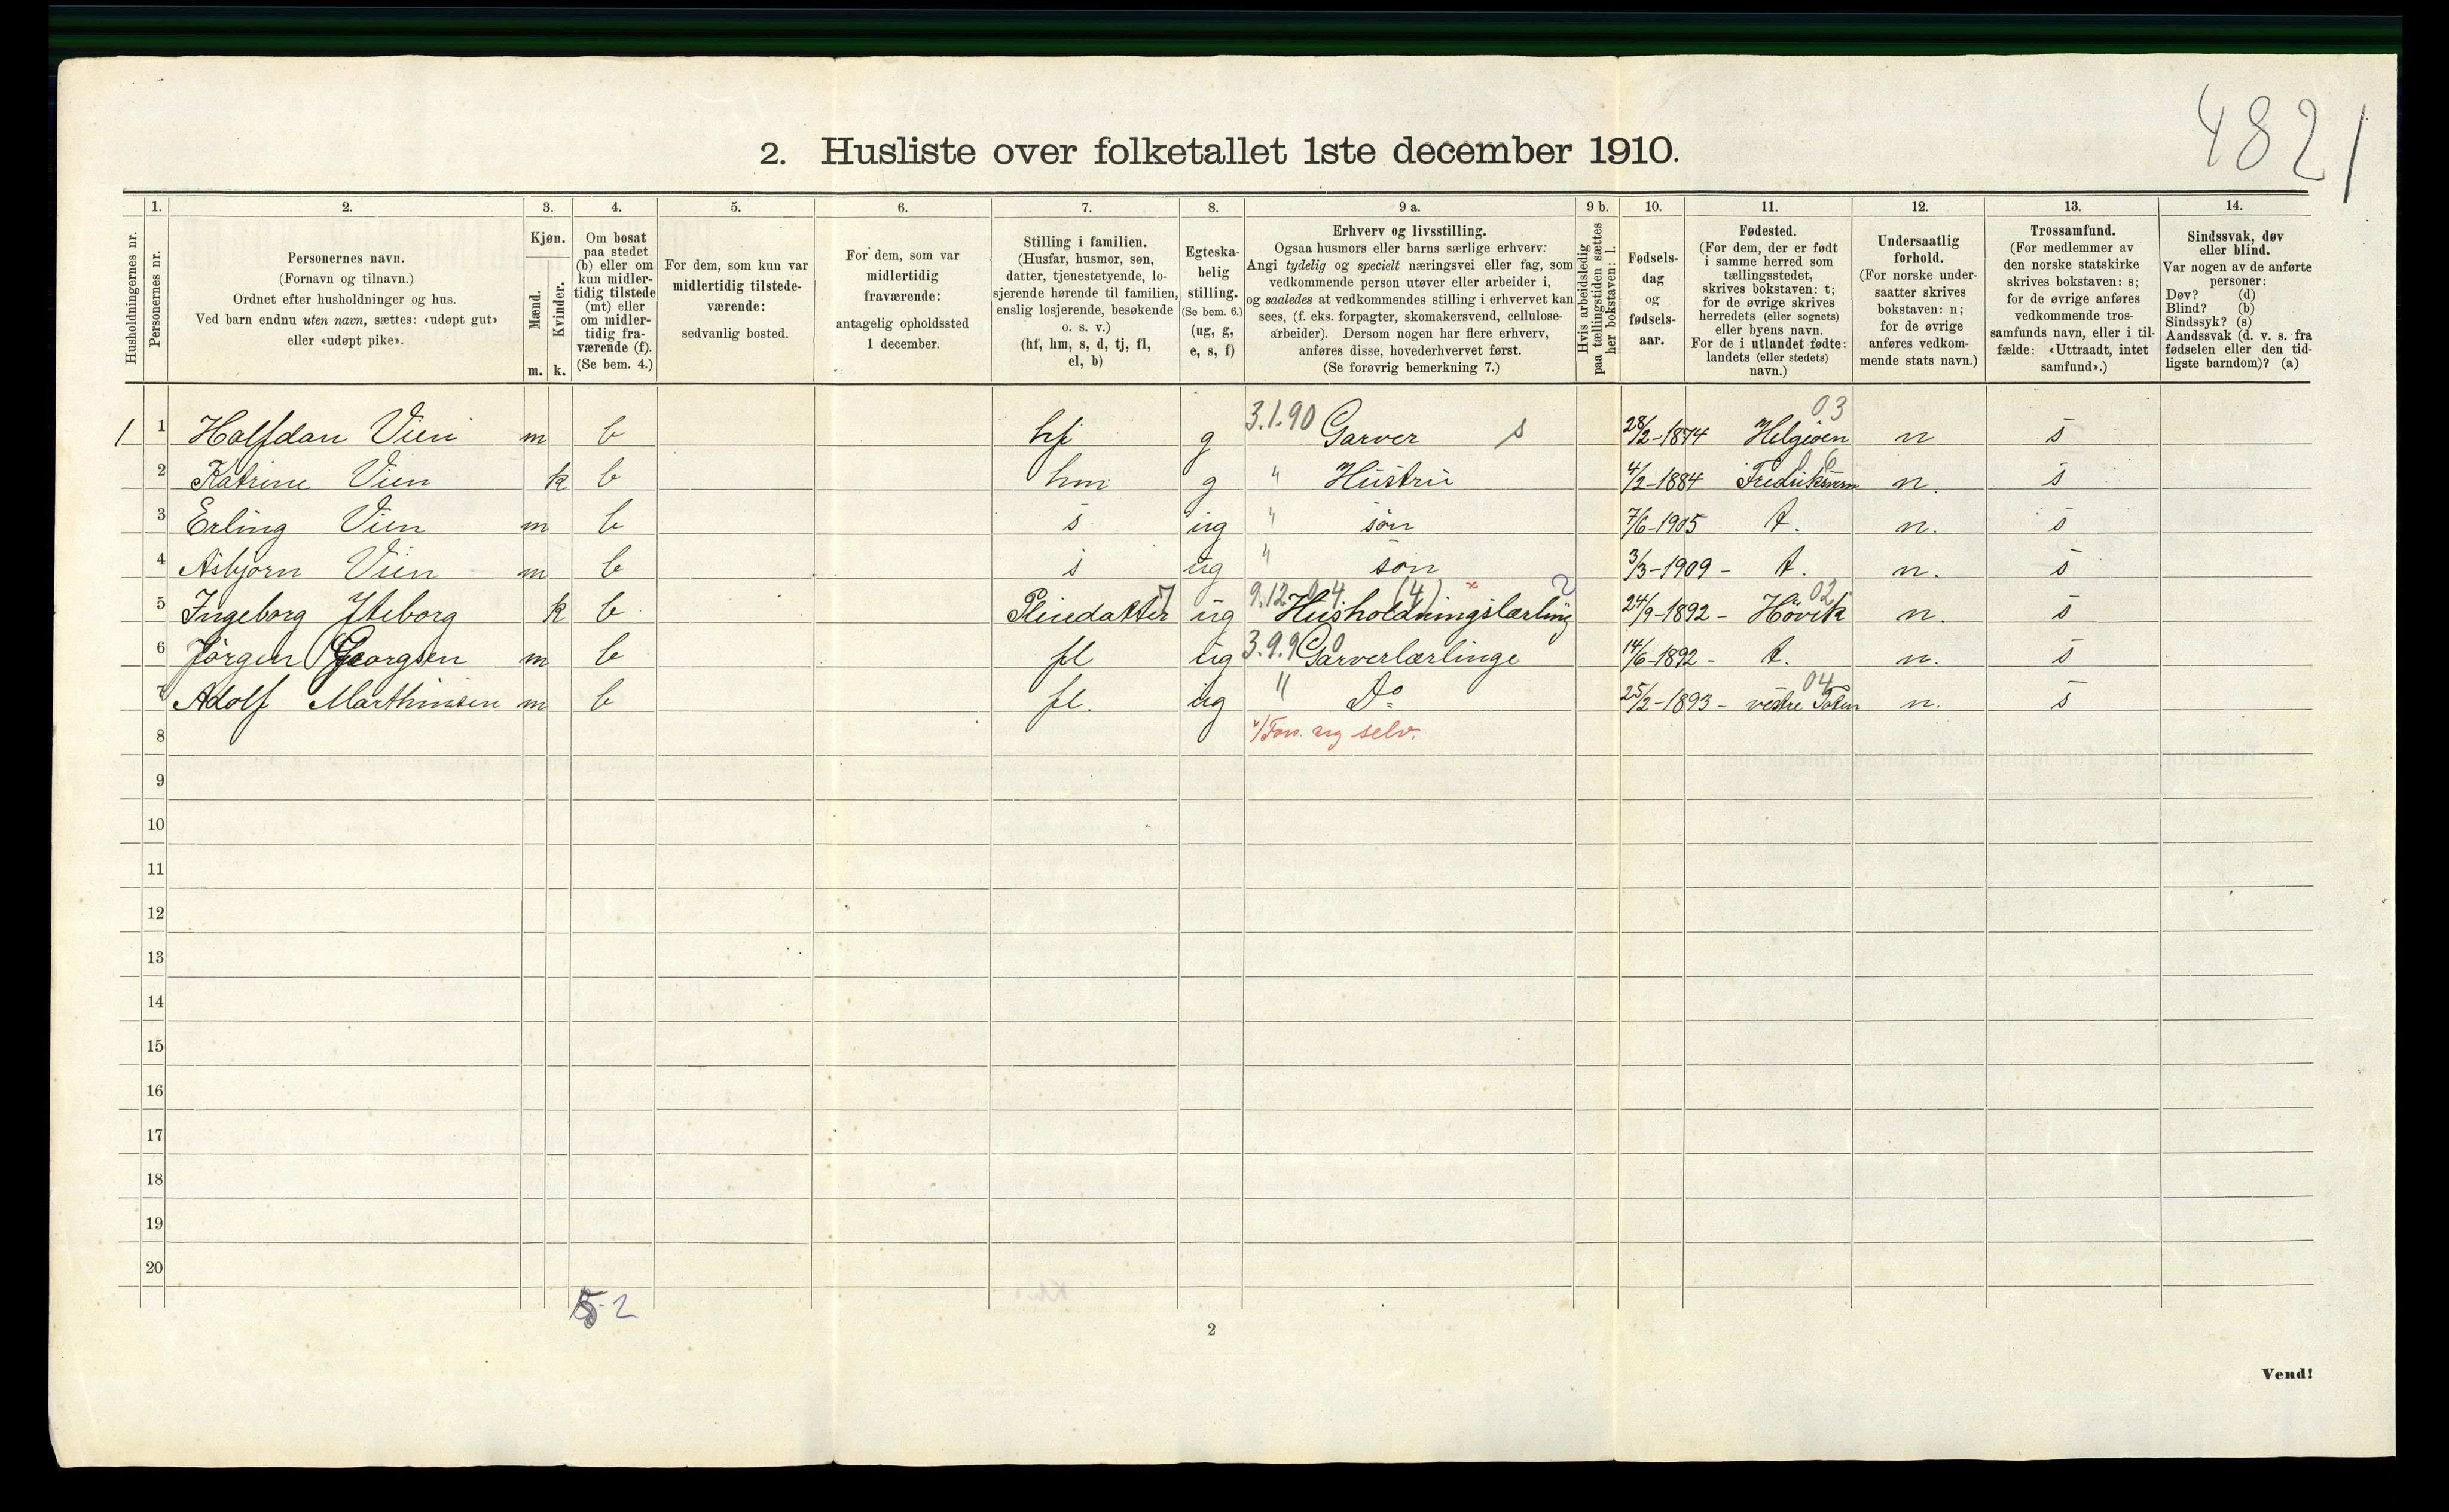 4821
2. Husliste over folketallet 1ste december 1910.
Husholdningernes nr.
1.
Personernes nr.
2.
Personernes navn.
(Fornavn og tilnavn.)
Ordnet efter husholdninger og hus.
Ved barn endnu uten navn, sættes: «udøpt gut»
eller «udøpt pike».
3.
Kjøn.
Mænd.
Kvinder.
m. k.
4.
Om bosat
paa stedet
(b) eller om
kun midler-
tidig tilstede
(mt) eller
om midler-
tidig fra-
værende (f).
(Se bem. 4.)
5.
For dem, som kun var
midlertidig tilstede-
værende:
sedvanlig bosted.
6.
For dem, som var
midlertidig
fraværende:
antagelig opholdssted
1 december.
7.
Stilling i familien.
(Husfar, husmor, søn,
datter, tjenestetyende, lo-
sjerende hørende til familien,
enslig losjerende, besøkende
o. s. v.)
(hf, hm, s, d, tj, fl,
el, b)
8.
Egteska-
belig
stilling.
(Se bem. 6.)
(ug, g,
e, s, f)
9 a.
Erhverv og livsstilling.
Ogsaa husmors eller barns særlige erhverv:
Angi tydelig og specielt næringsvei eller fag, som
vedkommende person utøver eller arbeider i,
og saaledes at vedkommendes stilling i erhvervet kan
sees, (f. eks. forpagter, skomakersvend, cellulose-
arbeider). Dersom nogen har flere erhverv,
anføres disse, hovederhvervet først.
(Se forøvrig bemerkning 7.)
9 b.
Hvis arbeidsledig
paa tællingstiden sættes
her bokstaven: l.
10.
Fødsels-
dag
og
fødsels-
aar.
11.
Fødested.
(For dem, der er født
i samme herred som
tællingsstedet,
skrives bokstaven: t;
for de øvrige skrives
herredets (eller sognets)
eller byens navn.
For de i utlandet fødte:
landets (eller stedets)
navn.)
12.
Undersaatlig
forhold.
(For norske under-
saatter skrives
bokstaven: n;
for de øvrige
anføres vedkom-
mende stats navn.)
13.
Trossamfund.
(For medlemmer av
den norske statskirke
skrives bokstaven: s;
for de øvrige anføres
vedkommende tros-
samfunds navn, eller i til-
fælde: «Uttraadt, intet
samfund».)
14.
Sindssvak, døv
eller blind.
Var nogen av de anførte
personer:
Døv? (d)
Blind? (b)
Sindssyk? (s)
Aandssvak (d. v. s. fra
fødselen eller den tid-
ligste barndom)? (a)
1 1 Halfdan Vien m b hf g 3.1.90 Garver s 28/2-1874 Helgøen 03 n s
2 Katrine Vien k b hm g " Hustru 4/2-1884 Fredriksværn 6 n. s
3 Erling Vien m b s ug " søn 7/6-1905 t. n. s
4 Asbjørn Vien m b s ug " søn 3/3-1909 - t. n. s
5 Ingeborg Steborg k b Pleiedatter ug 9.12.04 (4) x Husholdningslærling 2 24/9-1892 - Høvik 02 n. s
6 Jørgen Georgsen m b fl ug 3.9.90 Garverlærlinge 14/6-1892 - t. n. s
7 Adolf Marthinsen m b fl. ug " Do 25/2-1893 - vestre Toten 04 n. s
8 x/ Fors. sig selv.
9
10
11
12
13
14
15
16
17
18
19
20
5-2
2
Vend!